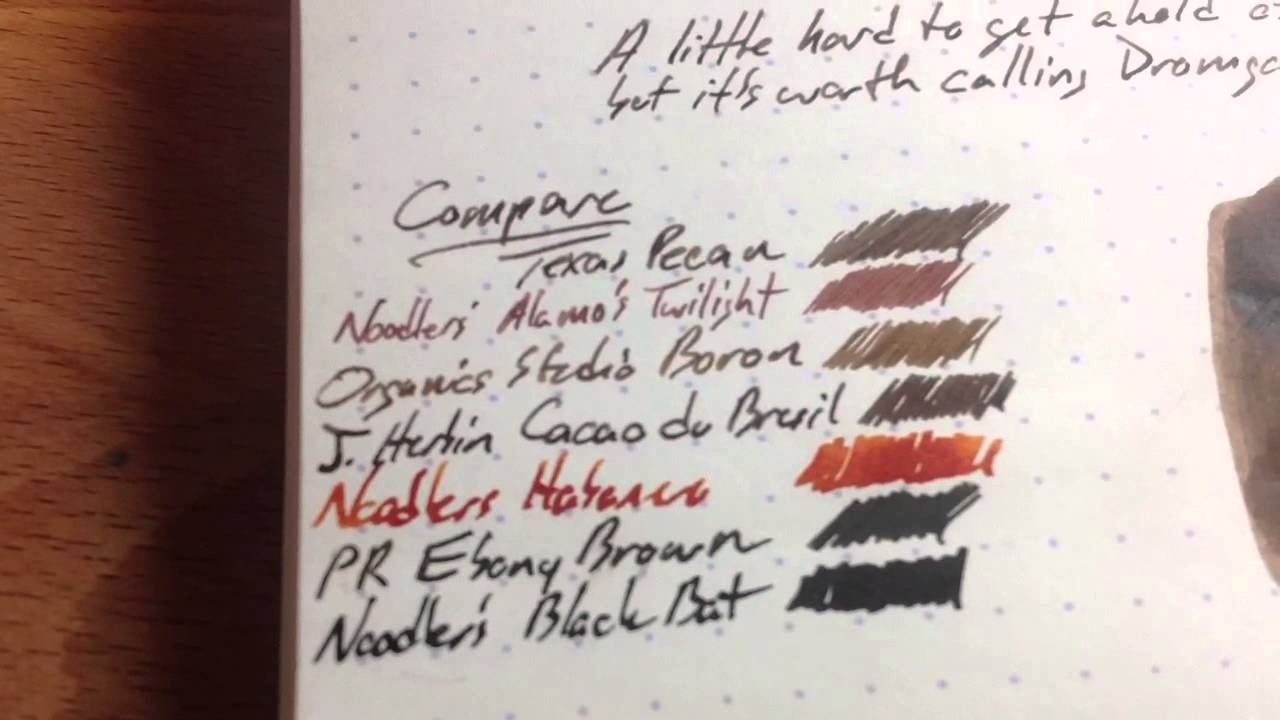 A little hard to get ahold
but it's worth calling Dromgo
Compare
Texas Pecan
Noodlers' Alamo's Twilight
Organics Studio Boron
J. Herbin Cacao du Bresil
Noodlers Habanero
PR Ebony Brown
Noodler's Black Bat